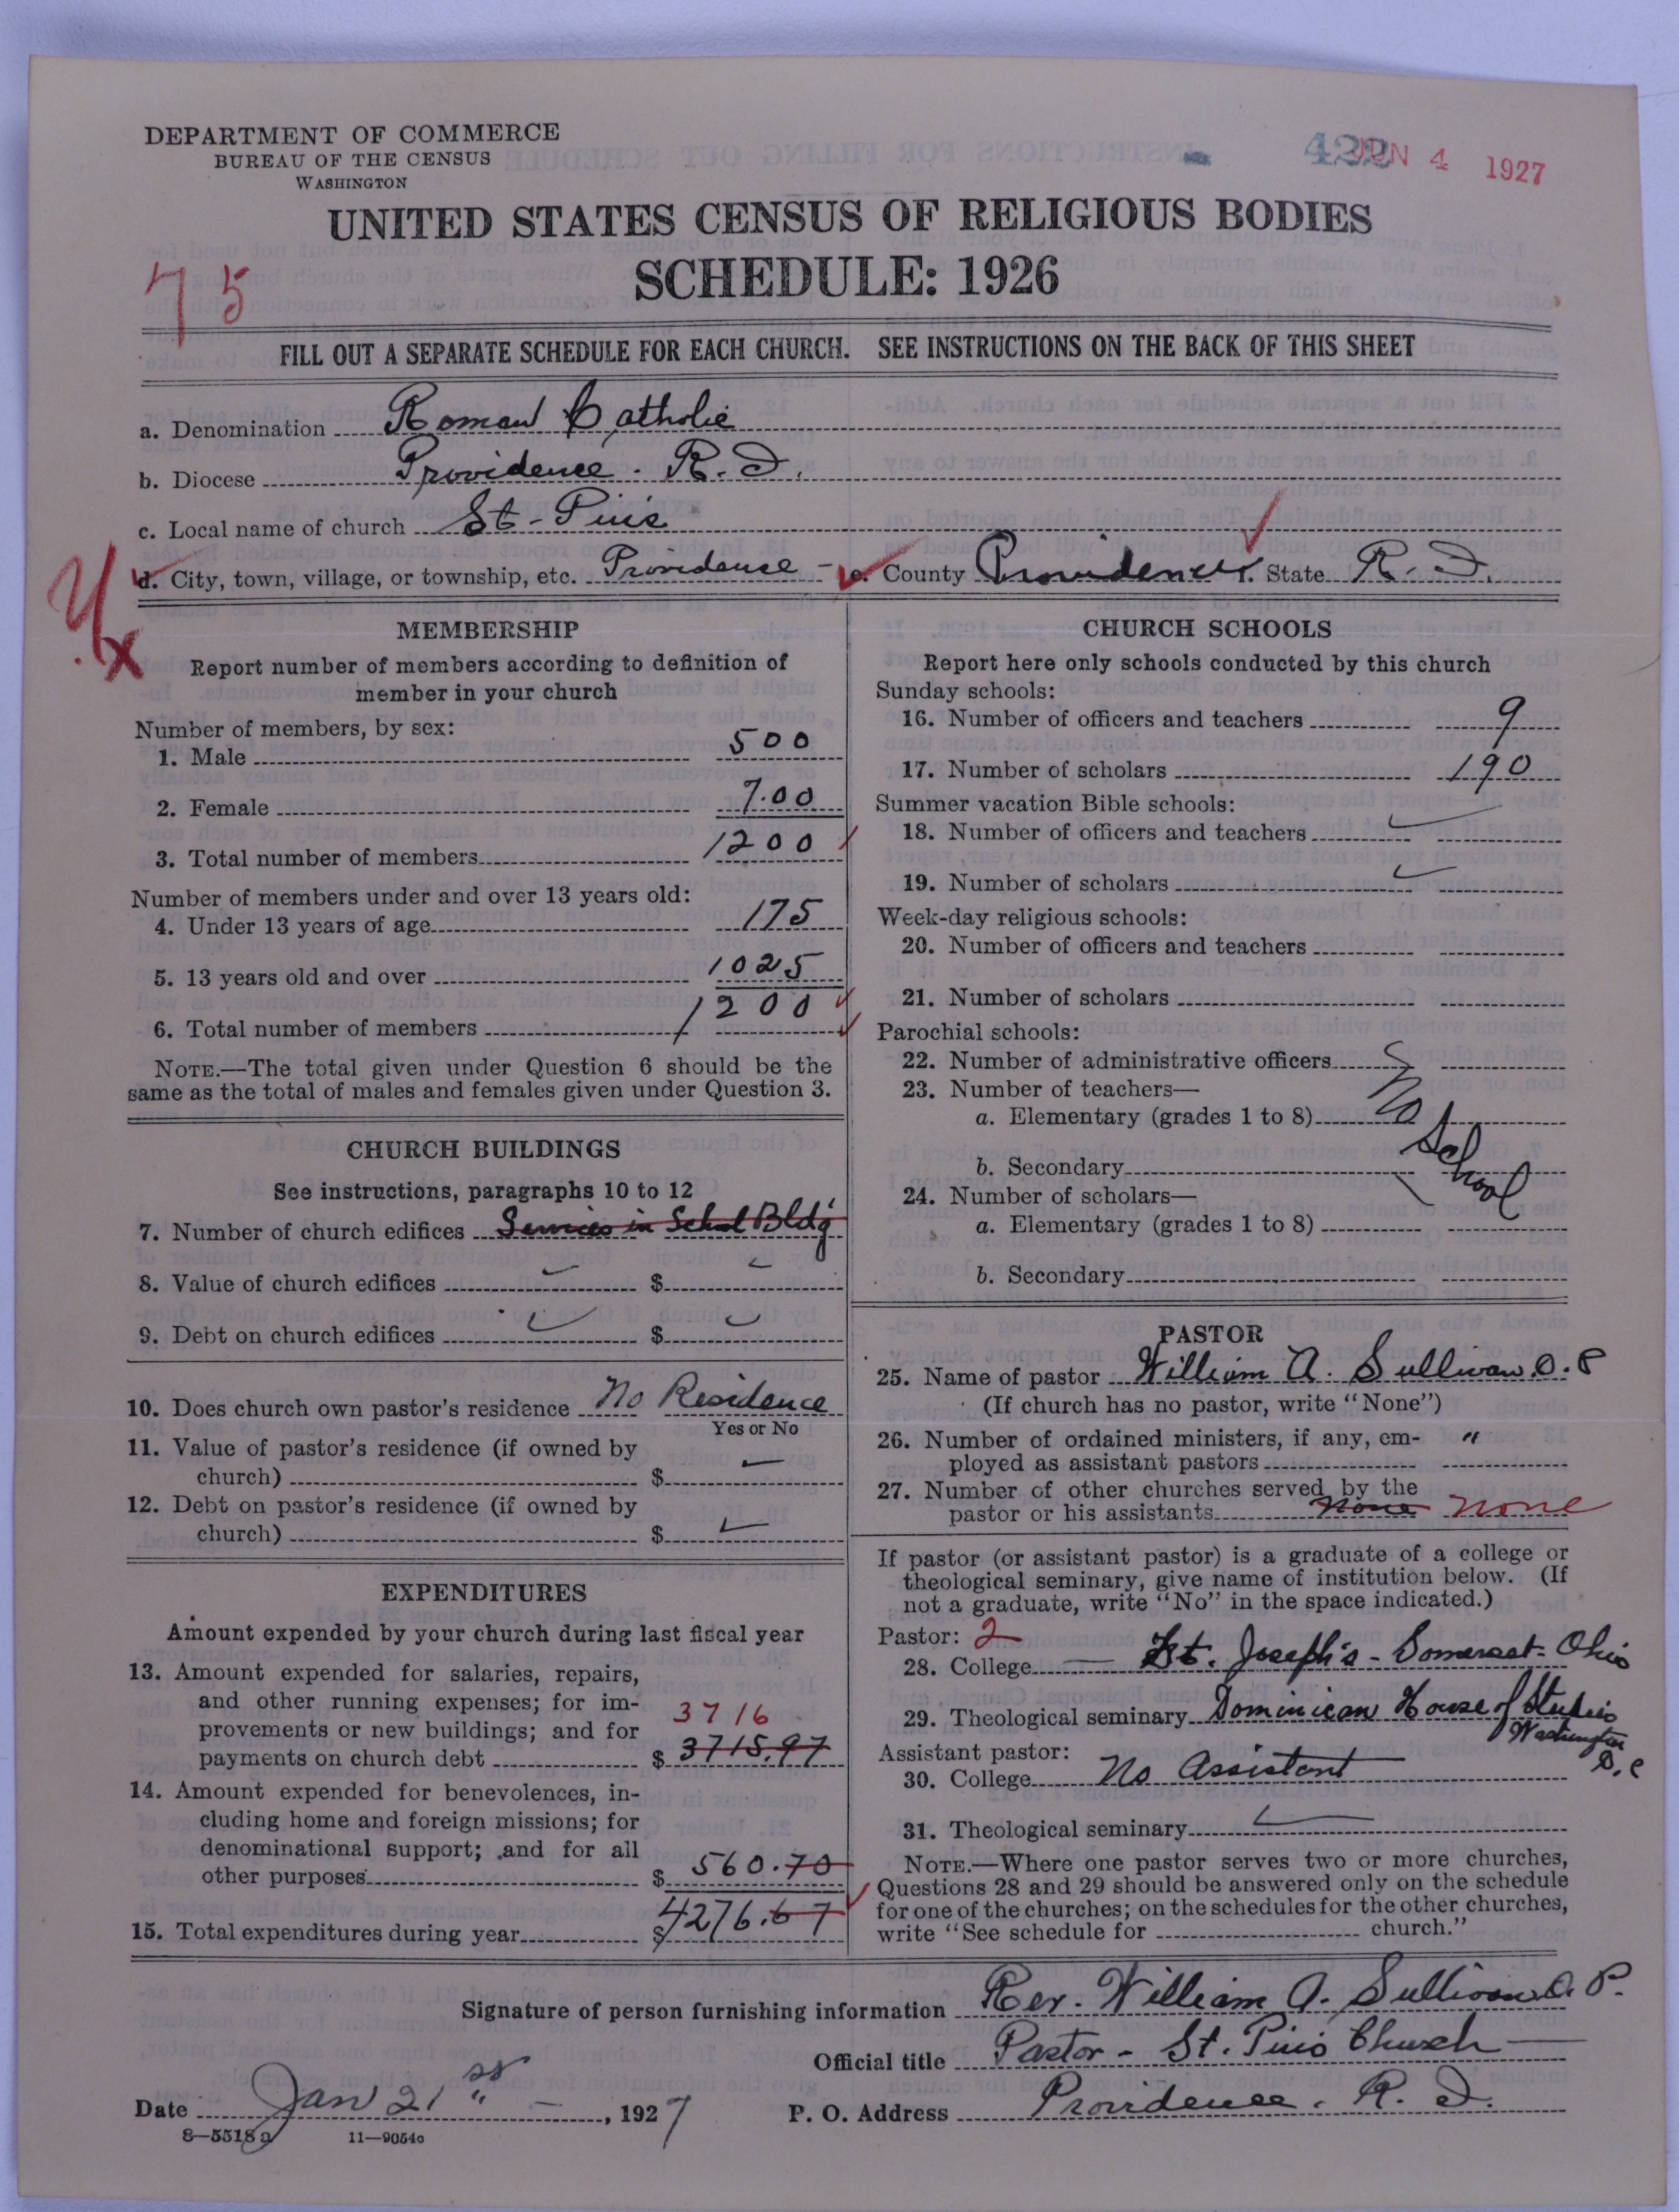 DEPARTMENT OF COMMERCE
BUREAU OF THE CENSUS
WASHINGTON
JUN 4 1927
UNITED STATES CENSUS OF RELIGIOUS BODIES
SCHEDULE: 1926
75
FILL OUT A SEPARATE SCHEDULE FOR EACH CHURCH. SEE INSTRUCTIONS ON THE BACK OF THIS SHEET
a. Denomination Roman Catholic
b. Diocese Providence. R. I.
c. Local name of church St-Pius
d. City, town, village, or township, etc. Providence - e. County Providence f. State R. I.
MEMBERSHIP
Report number of members according to definition of
member in your church
Number of members, by sex:
1. Male 500
2. Female 700
3. Total number of members 1200
Number of members under and over 13 years old:
4. Under 13 years of age 175
5. 13 years old and over 1025
6. Total number of members 1200
NOTE.—The total given under Question 6 should be the
same as the total of males and females given under Question 3.
CHURCH BUILDINGS
See instructions, paragraphs 10 to 12
7. Number of church edifices Services in School Bldg
8. Value of church edifices $
9. Debt on church edifices $
10. Does church own pastor's residence No Residence
Yes or No
11. Value of pastor's residence (if owned by
church) $
12. Debt on pastor's residence (if owned by
church) $
EXPENDITURES
Amount expended by your church during last fiscal year
13. Amount expended for salaries, repairs,
and other running expenses; for im-
provements or new buildings; and for
3716
payments on church debt $ 3715.97
14. Amount expended for benevolences, in-
cluding home and foreign missions; for
denominational support; and for all
other purposes $ 560.70
15. Total expenditures during year $4276.67
CHURCH SCHOOLS
Report here only schools conducted by this church
Sunday schools:
16. Number of officers and teachers 9
17. Number of scholars 190
Summer vacation Bible schools:
18. Number of officers and teachers
19. Number of scholars
Week-day religious schools:
20. Number of officers and teachers
21. Number of scholars
Parochial schools:
22. Number of administrative officers
23. Number of teachers—
a. Elementary (grades 1 to 8) No School
b. Secondary
24. Number of scholars—
a. Elementary (grades 1 to 8)
b. Secondary
PASTOR
25. Name of pastor William A. Sullivan. O. P
(If church has no pastor, write "None")
26. Number of ordained ministers, if any, em- "
ployed as assistant pastors
27. Number of other churches served by the
pastor or his assistants none none
If pastor (or assistant pastor) is a graduate of a college or
theological seminary, give name of institution below. (If
not a graduate, write "No" in the space indicated.)
Pastor: 2
28. College — St. Joseph's - Somerset - Ohio
29. Theological seminary Dominican House of Studies
Washington
D. C
Assistant pastor:
30. College No Assistant
31. Theological seminary
NOTE.—Where one pastor serves two or more churches,
Questions 28 and 29 should be answered only on the schedule
for one of the churches; on the schedules for the other churches,
write "See schedule for church."
Signature of person furnishing information Rev. William A. Sullivan O. P.
Official title Pastor - St. Pius Church
Date Jan 21st, 1927 P. O. Address Providence. R. I.
8—5518a 11—9054c